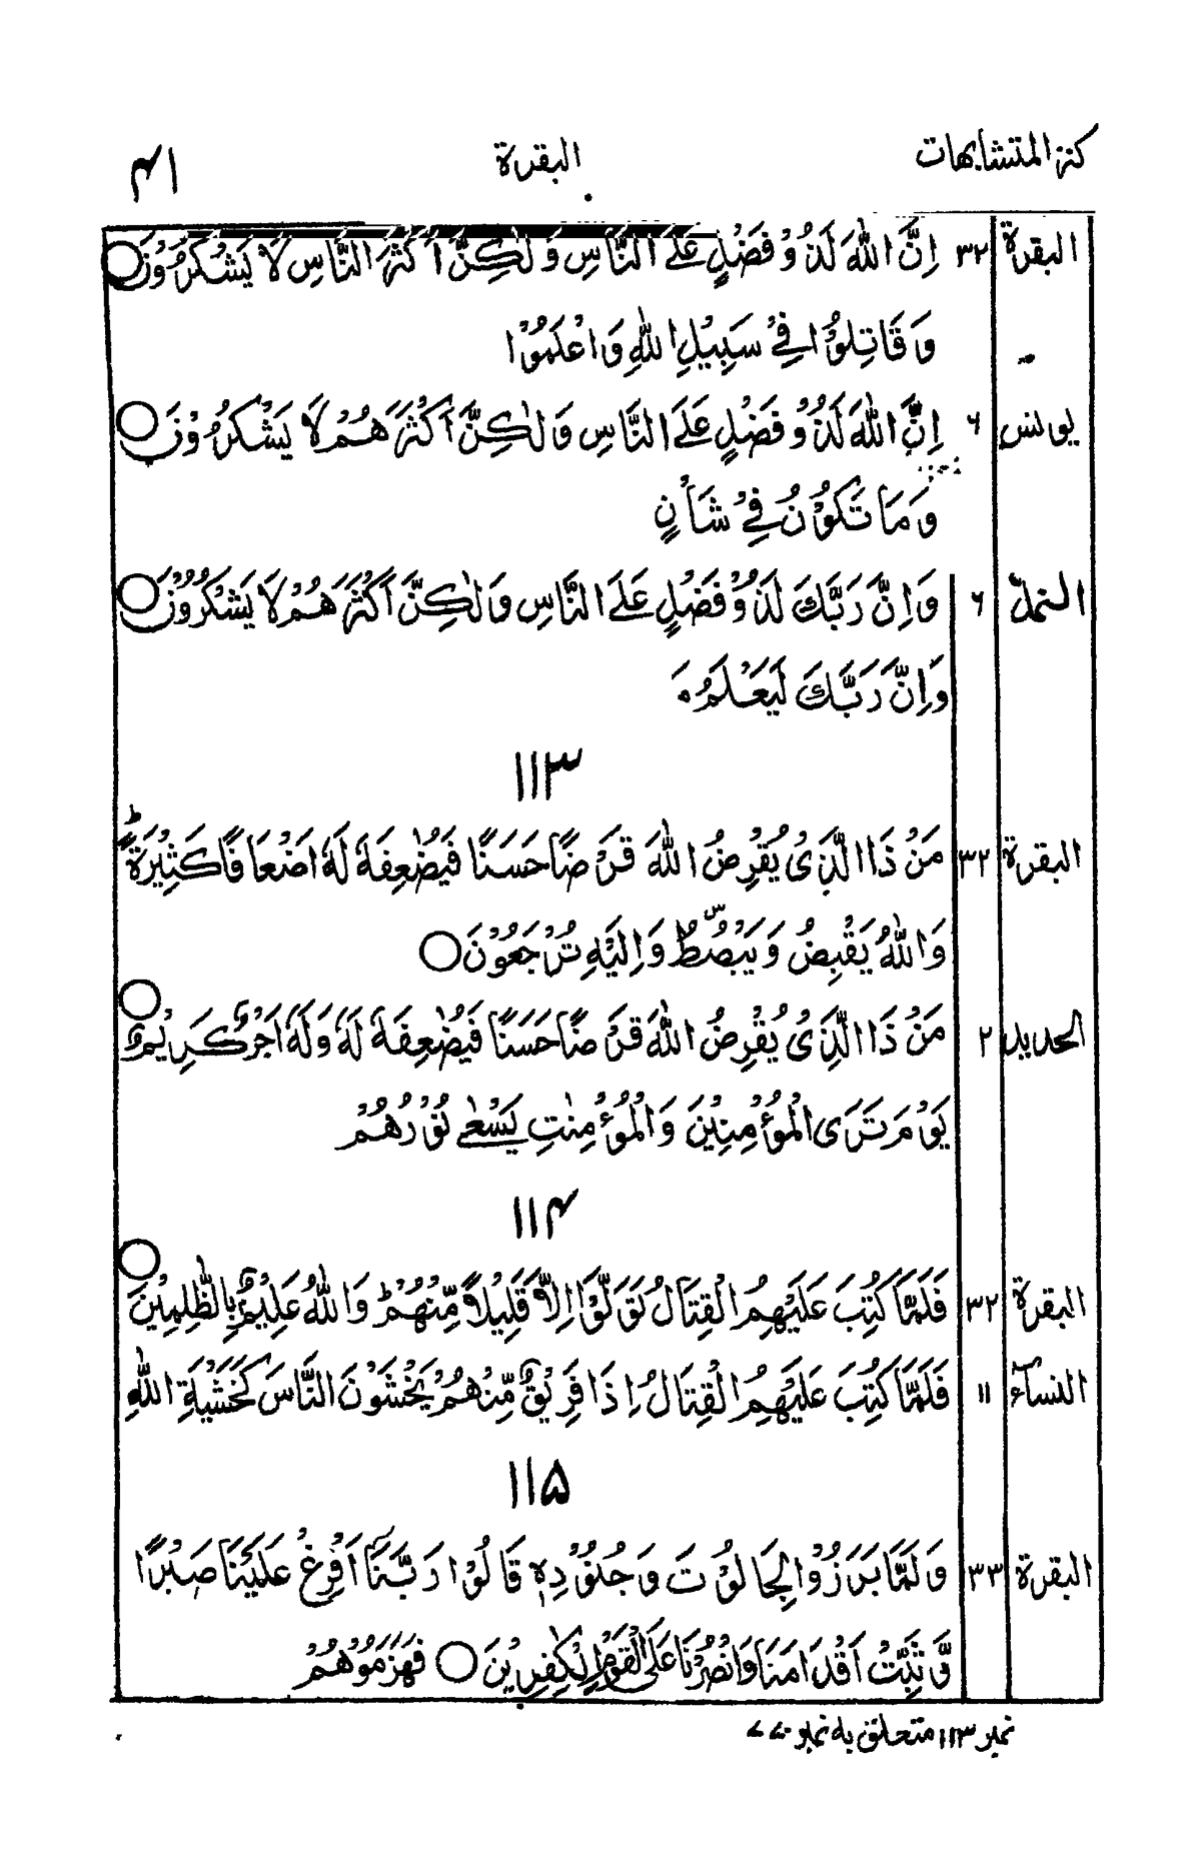 كنز المتشابهات البقرة ۴۱
البقرة ۳۲ اِنَّ اللّٰهَ لَذُوْ فَضْلٍ عَلَى النَّاسِ وَلٰكِنَّ اَكْثَرَ النَّاسِ لَا يَشْكُرُوْنَ ○
وَقَاتِلُوْا فِيْ سَبِيْلِ اللّٰهِ وَاعْلَمُوْا
يونس ۶ اِنَّ اللّٰهَ لَذُوْ فَضْلٍ عَلَى النَّاسِ وَلٰكِنَّ اَكْثَرَهُمْ لَا يَشْكُرُوْنَ ○
وَمَا تَكُوْنُ فِيْ شَأْنٍ
النمل ۶ وَاِنَّ رَبَّكَ لَذُوْ فَضْلٍ عَلَى النَّاسِ وَلٰكِنَّ اَكْثَرَهُمْ لَا يَشْكُرُوْنَ ○
وَاِنَّ رَبَّكَ لَيَعْلَمُ
۱۱۳
البقرة ۳۲ مَنْ ذَا الَّذِيْ يُقْرِضُ اللّٰهَ قَرْضًا حَسَنًا فَيُضٰعِفَهٗ لَهٗ اَضْعَافًا كَثِيْرَةً ؕ
وَاللّٰهُ يَقْبِضُ وَيَبْصُۜطُ وَاِلَيْهِ تُرْجَعُوْنَ ○
الحديد ۲ مَنْ ذَا الَّذِيْ يُقْرِضُ اللّٰهَ قَرْضًا حَسَنًا فَيُضٰعِفَهٗ لَهٗ وَلَهٗ اَجْرٌ كَرِيْمٌ ○
يَوْمَ تَرَى الْمُؤْمِنِيْنَ وَالْمُؤْمِنٰتِ يَسْعٰى نُوْرُهُمْ
۱۱۴
البقرة ۳۲ فَلَمَّا كُتِبَ عَلَيْهِمُ الْقِتَالُ تَوَلَّوْا اِلَّا قَلِيْلًا مِّنْهُمْ ؕ وَاللّٰهُ عَلِيْمٌۢ بِالظّٰلِمِيْنَ ○
النسآء ۱۱ فَلَمَّا كُتِبَ عَلَيْهِمُ الْقِتَالُ اِذَا فَرِيْقٌ مِّنْهُمْ يَخْشَوْنَ النَّاسَ كَخَشْيَةِ اللّٰهِ
۱۱۵
البقرة ۳۳ وَلَمَّا بَرَزُوْا لِجَالُوْتَ وَجُنُوْدِهٖ قَالُوْا رَبَّنَآ اَفْرِغْ عَلَيْنَا صَبْرًا
وَّثَبِّتْ اَقْدَامَنَا وَانْصُرْنَا عَلَى الْقَوْمِ الْكٰفِرِيْنَ ○ فَهَزَمُوْهُمْ
نمبر ۱۱۳ متعلق به نمبر ۷۷۰